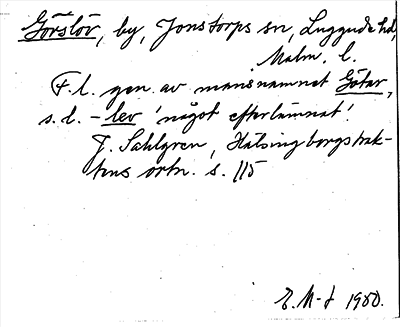 Görslöv, by, Jonstorps sn, Luggude hd,
Malm. l.
F.l. gen. av mansnamnet Götar,
s.l. -lev 'något efterlämnat'.
J. Sahlgren, Hälsingborgstrak-
tens ortn. s. 115
E. M-t 1950.